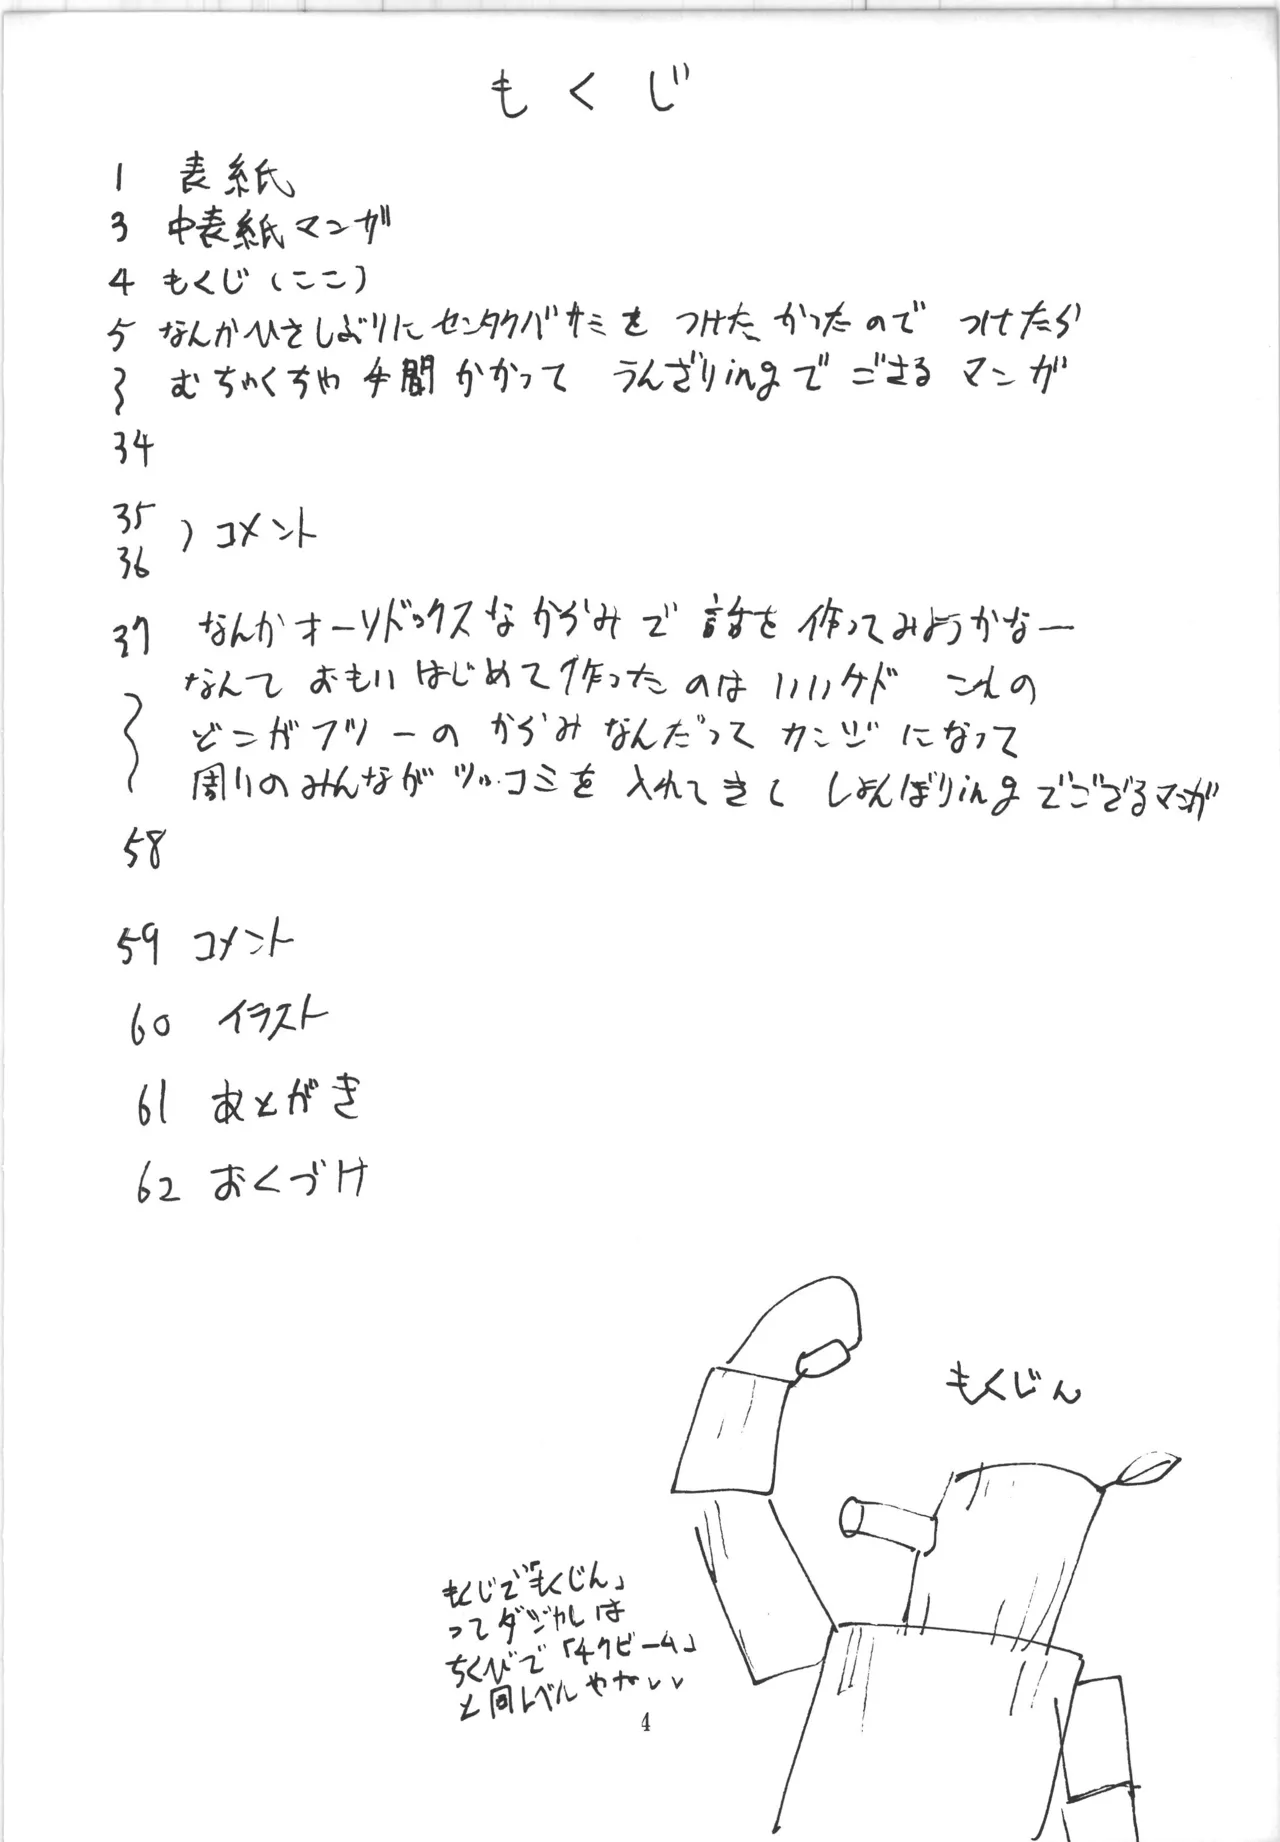 もくじ
1 表紙
3 中表紙マンガ
4 もくじ(ここ)
5 なんかひさしぶりにセンタクバサミをつけたかったのでつけたら
〜 むちゃくちゃ手間かかってうんざりingでござるマンガ
34
35
36 ) コメント
37 なんかオーソドックスなからみで話を作ってみようかなー
なんておもいはじめて作ったのはいいケドこれの
〜 どこがフツーのからみなんだってカンジになって
周りのみんながツッコミを入れてきてしょんぼりingでござるマンガ
58
59 コメント
60 イラスト
61 あとがき
62 おくづけ
もくじん
もくじで「もくじん」
ってダジャレは
ちくびで「チクビーム」
と同レベルやなぃぃ
4